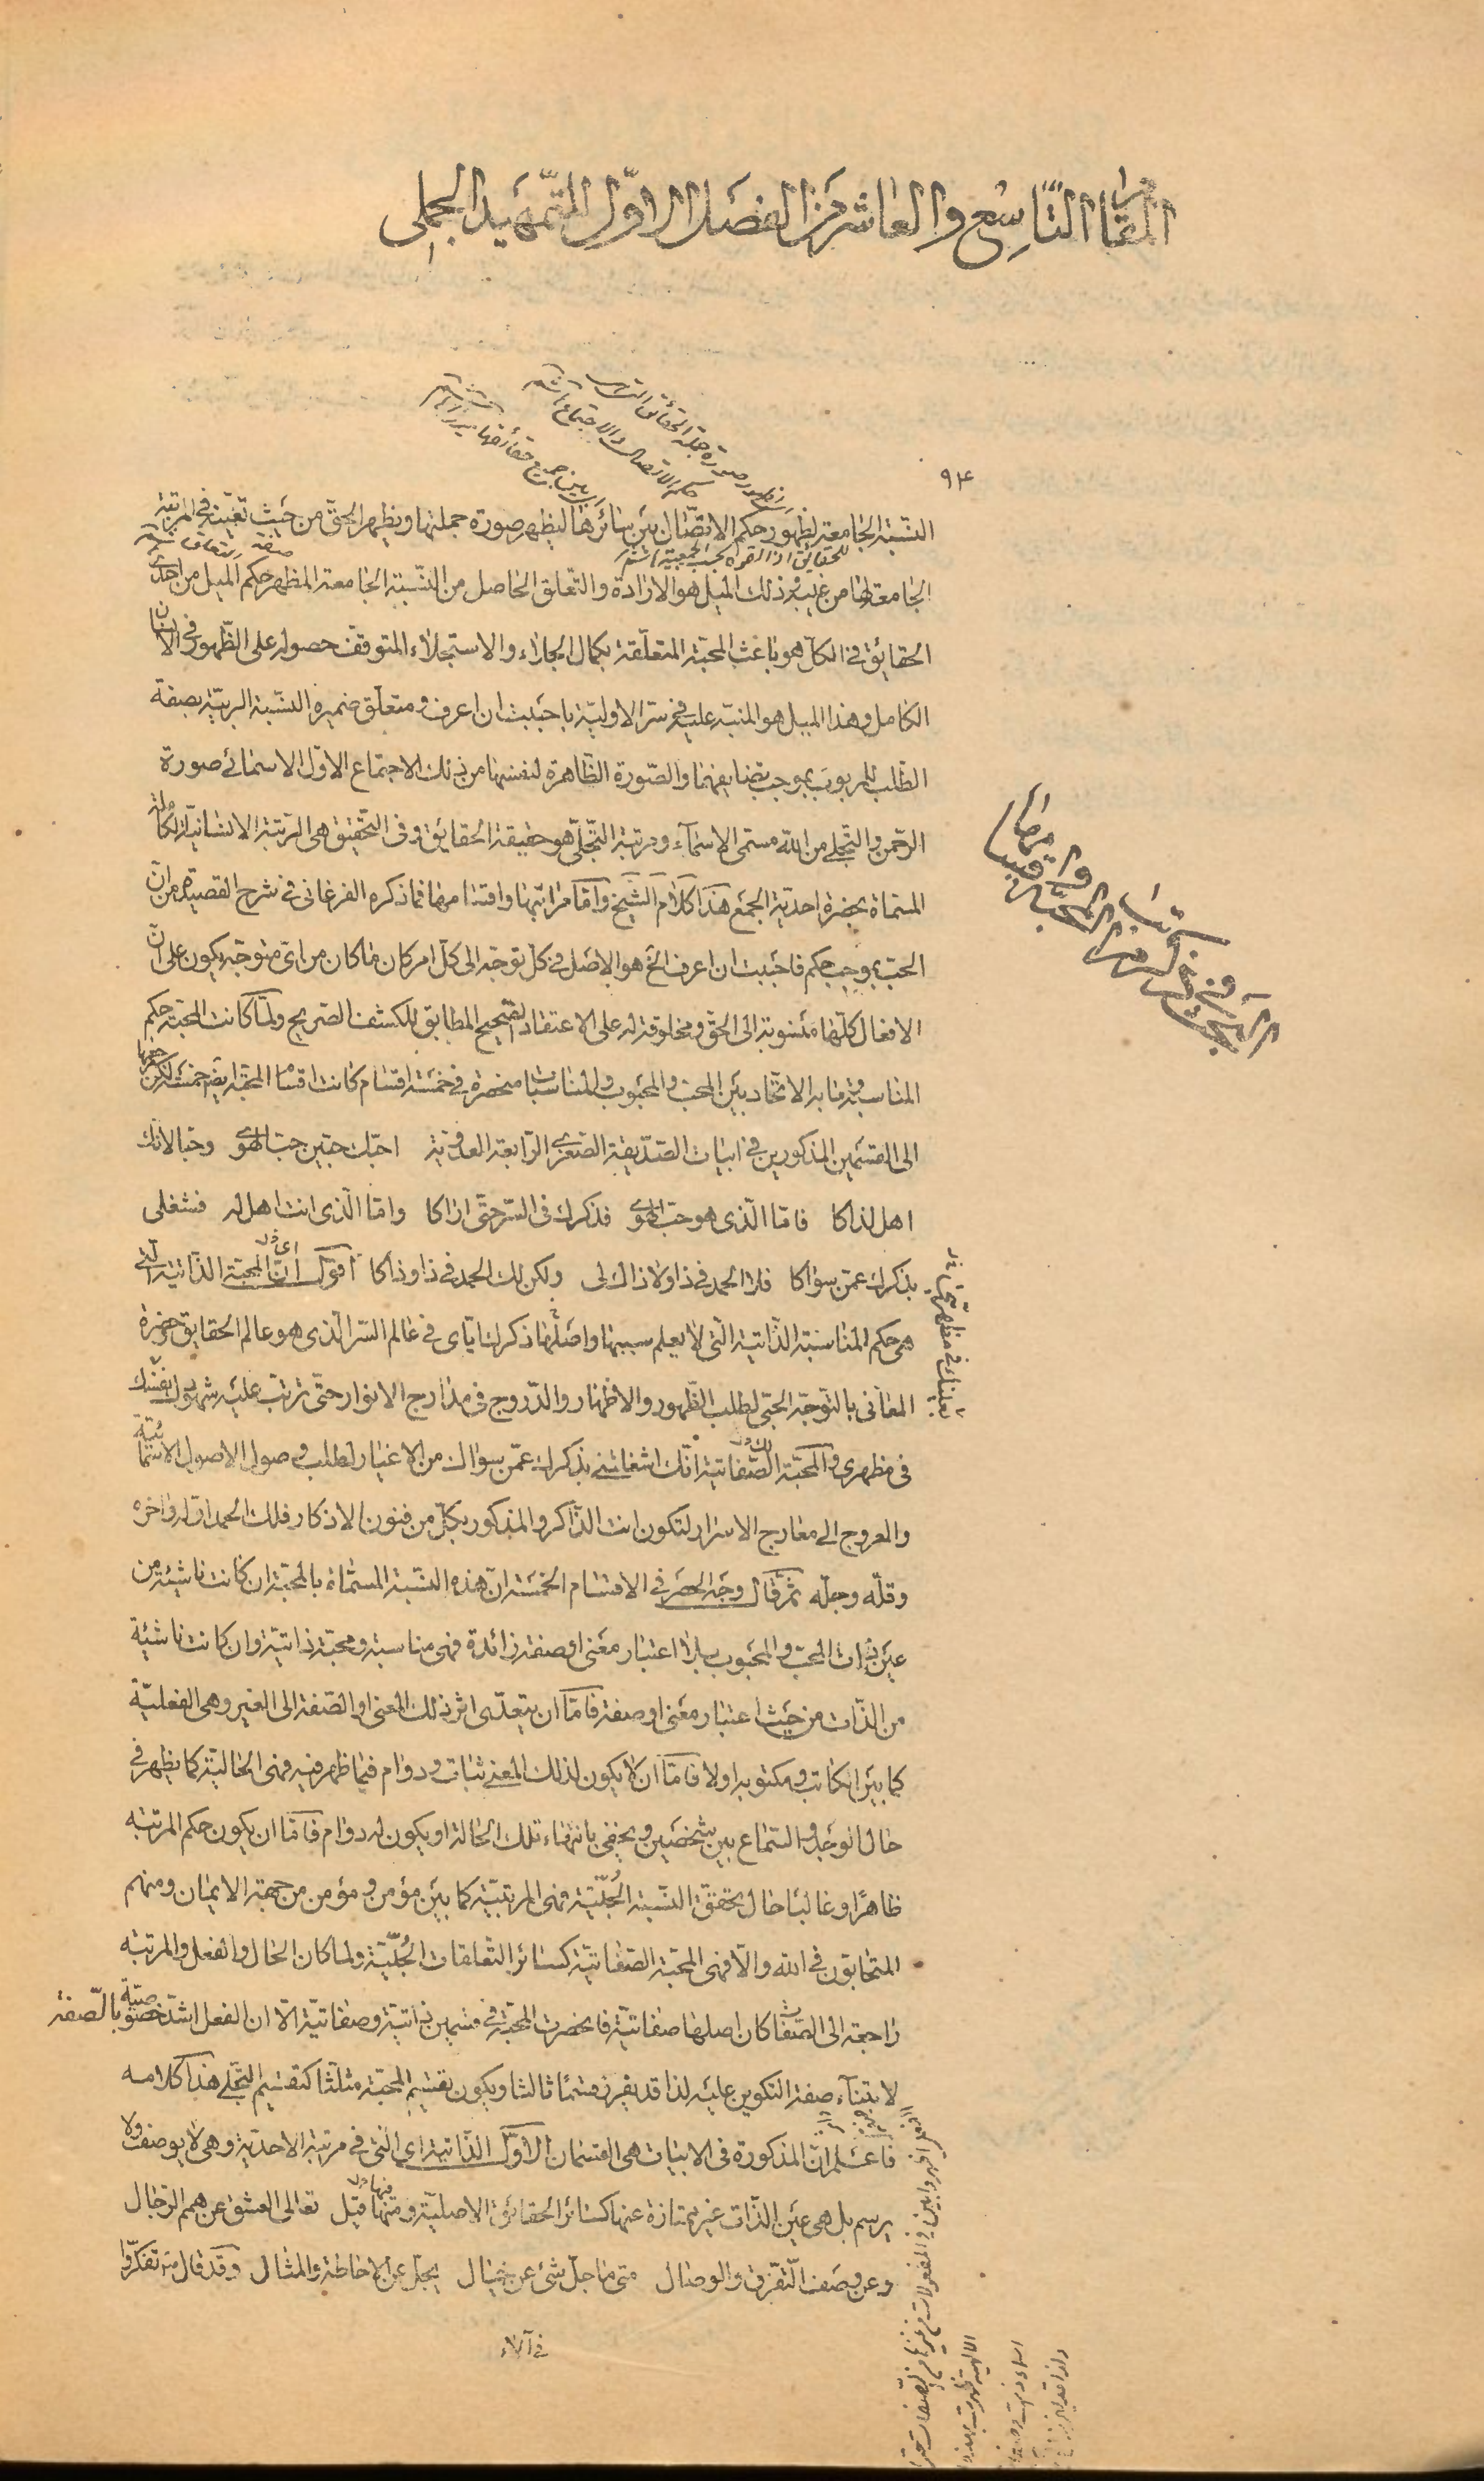 المقام التاسع والعاشر من الفصل الاوّل التمّهيد الجملى
٩٤
النّسبة الجامعة لظهور حكم الاتّصال بين سائرها ليظهر صورة جملتها ويظهر الحق من حيث تعيّنه فى المرتبة
الجامعة لها من غيب وذلك الميل هو الارادة والتّعلق الحاصل من النّسبة الجامعة المظهر حكم الميل من احدى
الحقايق فى الكلّ هو باعث المحبّة المتعلّقة بكمال الجلاء والاستجلاء المتوقّف حصوله على الظّهور فى الانسان
الكامل وهذا الميل هو المنبّه عليه فى سرّ الاوليّة باحببت ان اعرف ومتعلّق ضميره النّسبة الربّية بصفة
الطّلب للمربوب بموجب تضايفهما والصّورة الظّاهرة لنفسها من ذلك الاجتماع الاوّل الاسمائى صورة
الرّحمن والتّجلى من الله مسمّى الاسمآء ومرتبة التّجلّى هو حقيقة الحقايق وفى التحّقيق هى الرّتبة الانسانيّة الكماليّة
المسمّاة بحضرة احديّة الجمع هذا كلام الشّيخ وامّا مراتبها واقسامها فما ذكره الفرغانى فى شرح القصيدة من انّ
الحبّ بموجب حكم فاحببت ان اعرف الخ هو الاصل فى كلّ توجّه الى كلّ امر كان ما كان من اىّ متوجّه يكون على انّ
الافعال كلّها منسوبة الى الحقّ ومخلوقة له على الاعتقاد الصّحيح المطابق للكشف الصّريح ولمّا كانت المحبّة حكم
المناسبة وما به الاتّحاد بين المحبّ والمحبوب والمناسبات منحصرة فى خمسة اقسام كانت اقسام المحبّة ايضا خمسة لكن مرجعها
الى القسمين المذكورين فى ابيات الصّدّيقة الصّغرى الرّابعة العدويّة احبّك حبّين حبّ الهوى وحبا لانك
اهل لذاكا فامّا الّذى هو حبّ الهوى فذكرك فى السّرّ حتّى اراكا وامّا الّذى انت اهل له فشغلى
بذكرك عمّن سواكا فلا الحمد فى ذا ولا ذاك لى ولكن لك الحمد فى ذا وذاكا اقول اىّ انّ المحبّة الذّاتية الّتى
هى حكم المناسبة الذّاتية الّتى لا يعلم سببها واصلها ذكرك ايّاى فى عالم السّر الّذى هو عالم الحقايق وحضرة
المعانى بالتّوجّه الحبّى لطلب الظّهور والاظهار والدّروج فى مدارج الانوار حتّى ترتّب عليه شهودك نفسك
فى مظهرى والمحبّة الصّفاتيّة انّك اشغلتنى بذكرك عمّن سواك من الاغيار لطلب وصول الاصول الاسمائيّة
والعروج الى معارج الاسرار لتكون انت الذّاكر والمذكور بكلّ من فنون الاذكار فلك الحمد اوّله واخره
وقلّه وجلّه ثمّ قال وجه الحصر فى الاقسام الخمسة انّ هذه النّسبة المسمّاة بالمحبّة ان كانت ناشئة من
عين ذات المحبّ والمحبوب بلا اعتبار معنى او صفة زائدة فهى مناسبة ومحبّة ذاتيّة وان كانت ناشئة
من الذّات من حيث اعتبار معنى او صفة فامّا ان يتعدّى اثر ذلك المعنى او الصّفة الى الغير وهى الفعليّة
كما بين الكاتب ومكتوبه اولا فامّا ان لا يكون لذلك المعنى ثبات ودوام فيما ظهر فيه فهى الحاليّة كما يظهر فى
حال الوجد والسّماع بين شخصين ويخفى بانتهاء تلك الحالة او يكون له دوام فامّا ان يكون حكم المرتبة
ظاهرا وغالبا حال تحقّق النّسبة الحبّيّة فهى المرتبيّة كما بين مؤمن ومؤمن من جهة الايمان ومنهم
المتحابّون فى الله والّا فهى المحبّة الصّفاتيّة كسائر التّعلقات الحبّيّة ولما كان الحال والفعل والمرتبة
راجعة الى الصّفات كان اصلها صفاتيّة فانحصرت المحبّة فى قسمين ذاتيّة وصفاتيّة الّا ان الفعل اشدّ خصوصيّة بالصّفة
لابتنآء صفة التكوين عليه لذا قد يفرز قسما ثالثا ويكون تقسيم المحبّة مثلّثا كتقسيم التّجلى هذا كلامه
فاعلم انّ المذكورة فى الابيات هى القسمان الاوّل الذّاتية اى الّتى فى مرتبة الاحديّة وهى لا يوصف ولا
يرسم بل هى عين الذّات غير ممتازة عنها كسائر الحقائق الاصليّة ومنها قيل تعالى العشق عن همم الرّجال
وعن وصف التّفرّق والوصال متى ما جلّ شئ عن خيال يجلّ عن الاحاطة والمثال وقد قال ص تفكّروا
فى آلاء